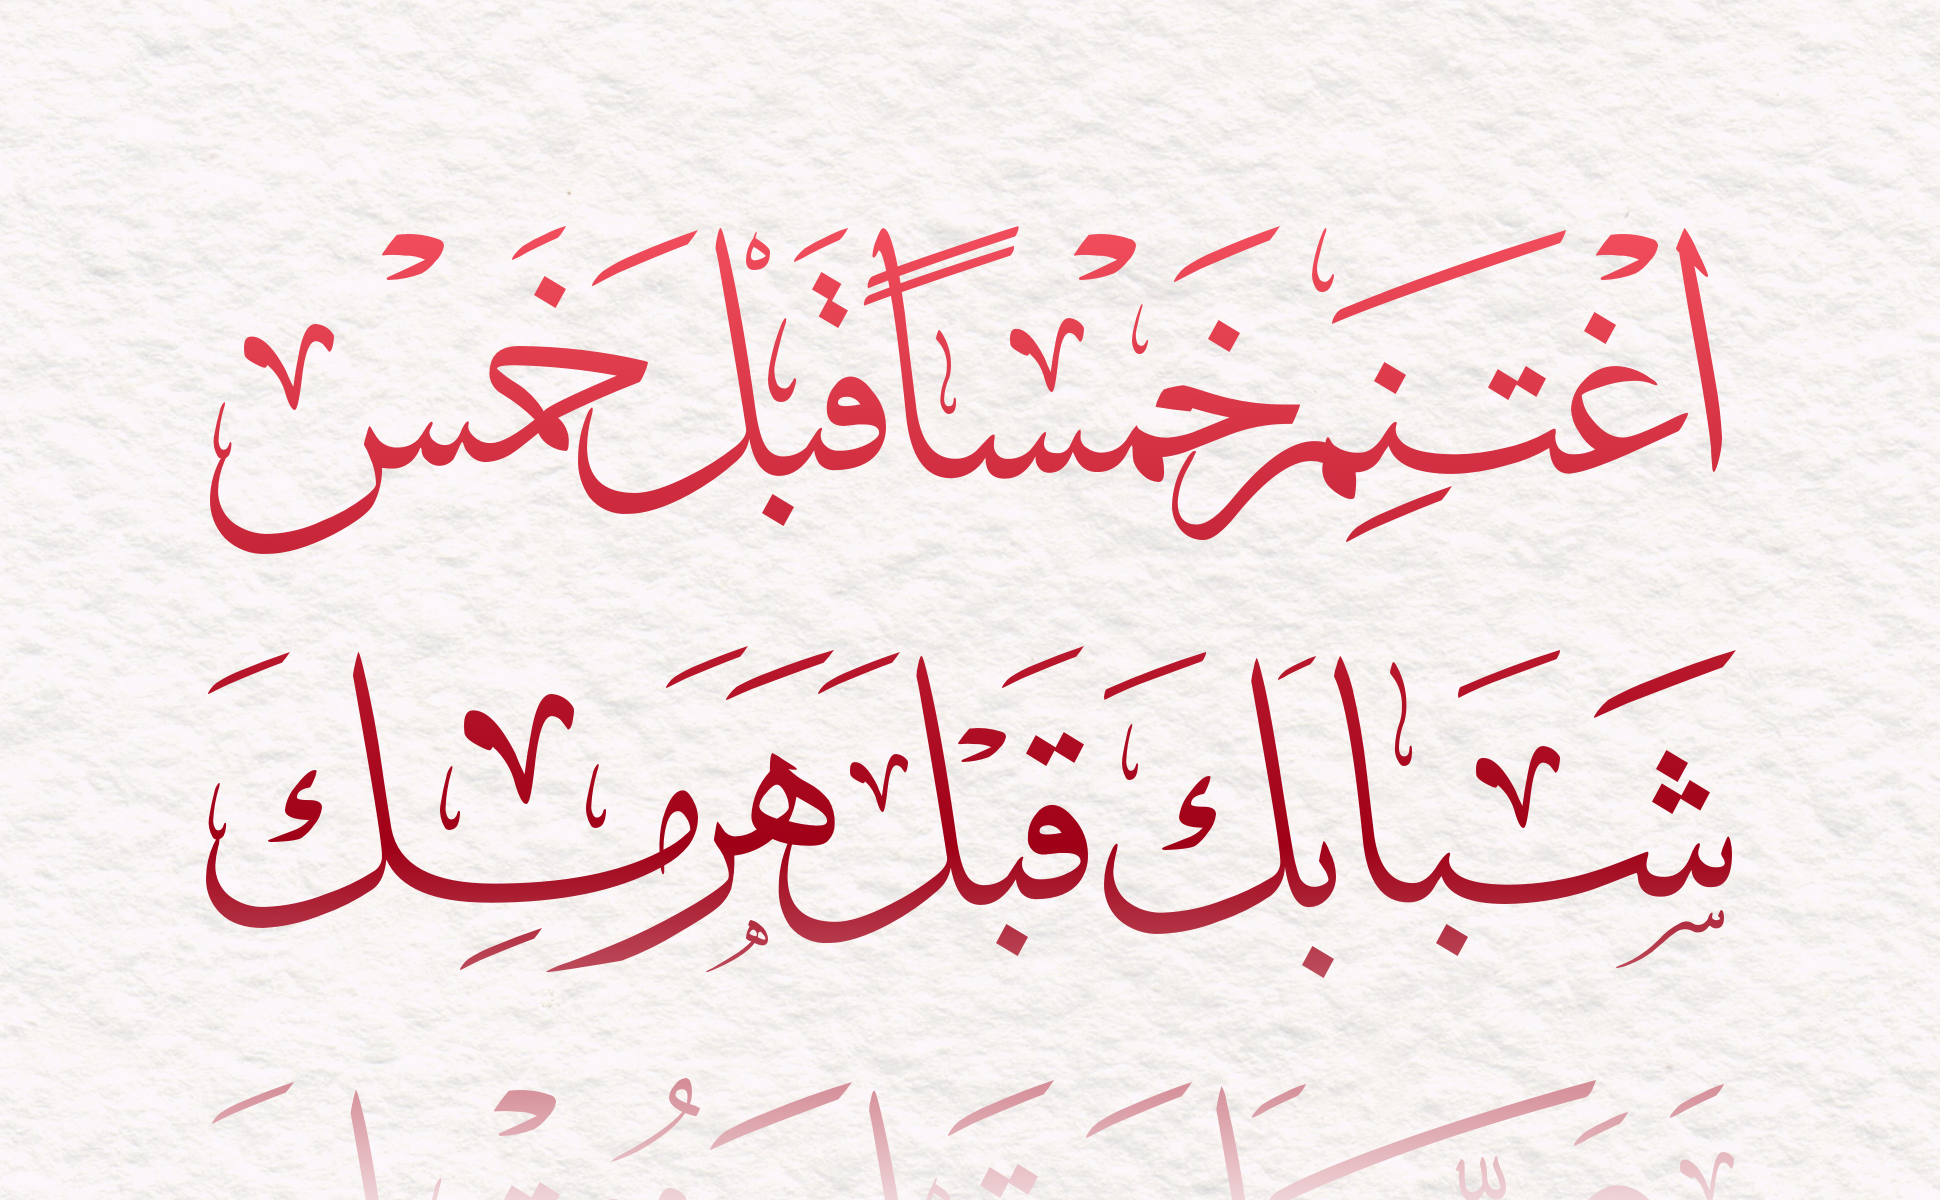 اغْتَنِمْ خَمْساً قَبْلَ خَمْسْ
شَبَابَكَ قَبْلَ هَرَمِكَ